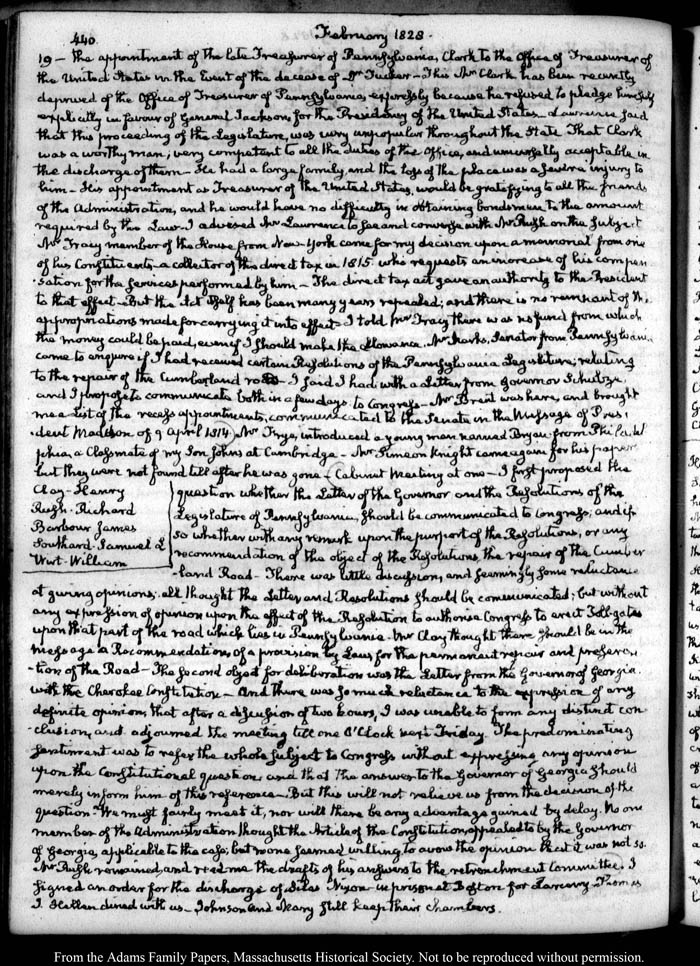 440.
February 1828.
19 — the appointment of the late Treasurer of Pennsylvania, Clark to the Office of Treasurer of
the United States in the Event of the decease of Dr Tucker — This Mr Clark has been recently
deprived of the Office of Treasurer of Pennsylvania, expressly because he refused to pledge himself
explicitly in favour of General Jackson, for the Presidency of the United States — Lawrence said
that this proceeding of the Legislature, was very unpopular throughout the State. That Clark
was a worthy man; very competent to all the duties of the Office, and universally acceptable in
the discharge of them — He had a large family, and the loss of the place was a severe injury to
him — His appointment as Treasurer of the United States, would be gratifying to all the friends
of the Administration, and he would have no difficulty in obtaining bondsmen to the amount
required by the Law — I advised Mr Lawrence to see and converse with Mr Rush on the subject
Mr Tracy member of the House from New-York came for my decision upon a memorial from one
of his Constituents — a collector of the direct tax in 1815. who requests an increase of his compen
-sation for the services performed by him — The direct tax act gave an authority to the President
to that effect — But the Act itself has been many years repealed; and there is no remnant of the
appropriations made for carrying it into effect. I told Mr Tracy there was no fund from which
the money could be paid, even if I should make the allowance. Mr Marks, Senator from Pennsylvania
came to enquire if I had received certain Resolutions of the Pennsylvania Legislature, relating
to the repair of the Cumberland road — I said I had with a Letter from Governor Schultze,
and I propose to communicate both in a few days to Congress — Mr Brent was here, and brought
me a list of the recess appointments, communicated to the Senate in the Message of Presi
-dent Madison of 9 April 1814) Mr Frye, introduced a young man named Bryan from Philadel
phia, a Classmate of my Son John's at Cambridge — Mr Simeon Knight came again for his papers
but they were not found till after he was gone — (Cabinet Meeting at one — I first proposed the
Clay — Henry
Rush — Richard
Barbour James
Southard — Samuel L
Wirt — William
question whether the Letter of the Governor and the Resolutions of the
Legislature of Pennsylvania, should be communicated to Congress; and if
so whether with any remark upon the purport of the Resolutions, or any
recommendation of the object of the Resolutions, the repair of the Cumber
-land Road — There was little discussion, and seemingly some reluctance
at giving opinions; all thought the Letter and Resolutions should be communicated; but without
any expression of opinion upon the effect of the Resolution to authorise Congress to erect Toll-gates
upon that part of the road which lies in Pennsylvania. Mr Clay thought there should be in the
message a Recommendation, of a provision by Law, for the permanent repair and preserva
-tion of the Road — The second object for deliberation was the Letter from the Governor of Georgia.
with the Cherokee Constitution — And there was so much reluctance to the expression of any
definite opinion, that after a discussion of two hours, I was unable to form any distinct con
clusion, and adjourned the meeting till one O'Clock next Friday. The predominating
sentiment was to refer the whole subject to Congress without expressing any opinion
upon the Constitutional question, and that the answer to the Governor of Georgia should
merely inform him of this reference — But this will not relieve us from the decision of the
question — We must fairly meet it, nor will there be any advantage gained by delay. No one
member of the Administration thought the Article of the Constitution, appealed to by the Governor
of Georgia, applicable to the case; but none seemed willing to avow the opinion that it was not so.
Mr Rush remained, and read me the drafts of his answers to the retrenchment Committee. I
signed an order for the discharge of Silas Nixon imprisoned Boston for Larceny. Thomas
J. Hellen dined with us — Johnson and Mary still keep their chambers.
From the Adams Family Papers, Massachusetts Historical Society. Not to be reproduced without permission.